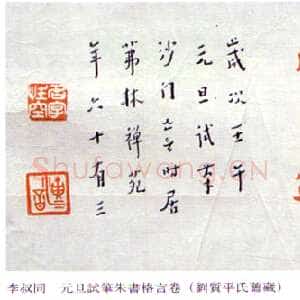 歲次壬午
元旦試筆
沙门亡言时居
茀林禅苑
年六十有三
名字性空
Shufawang.CN
李叔同　元旦試筆朱書格言卷（劉質平氏舊藏）